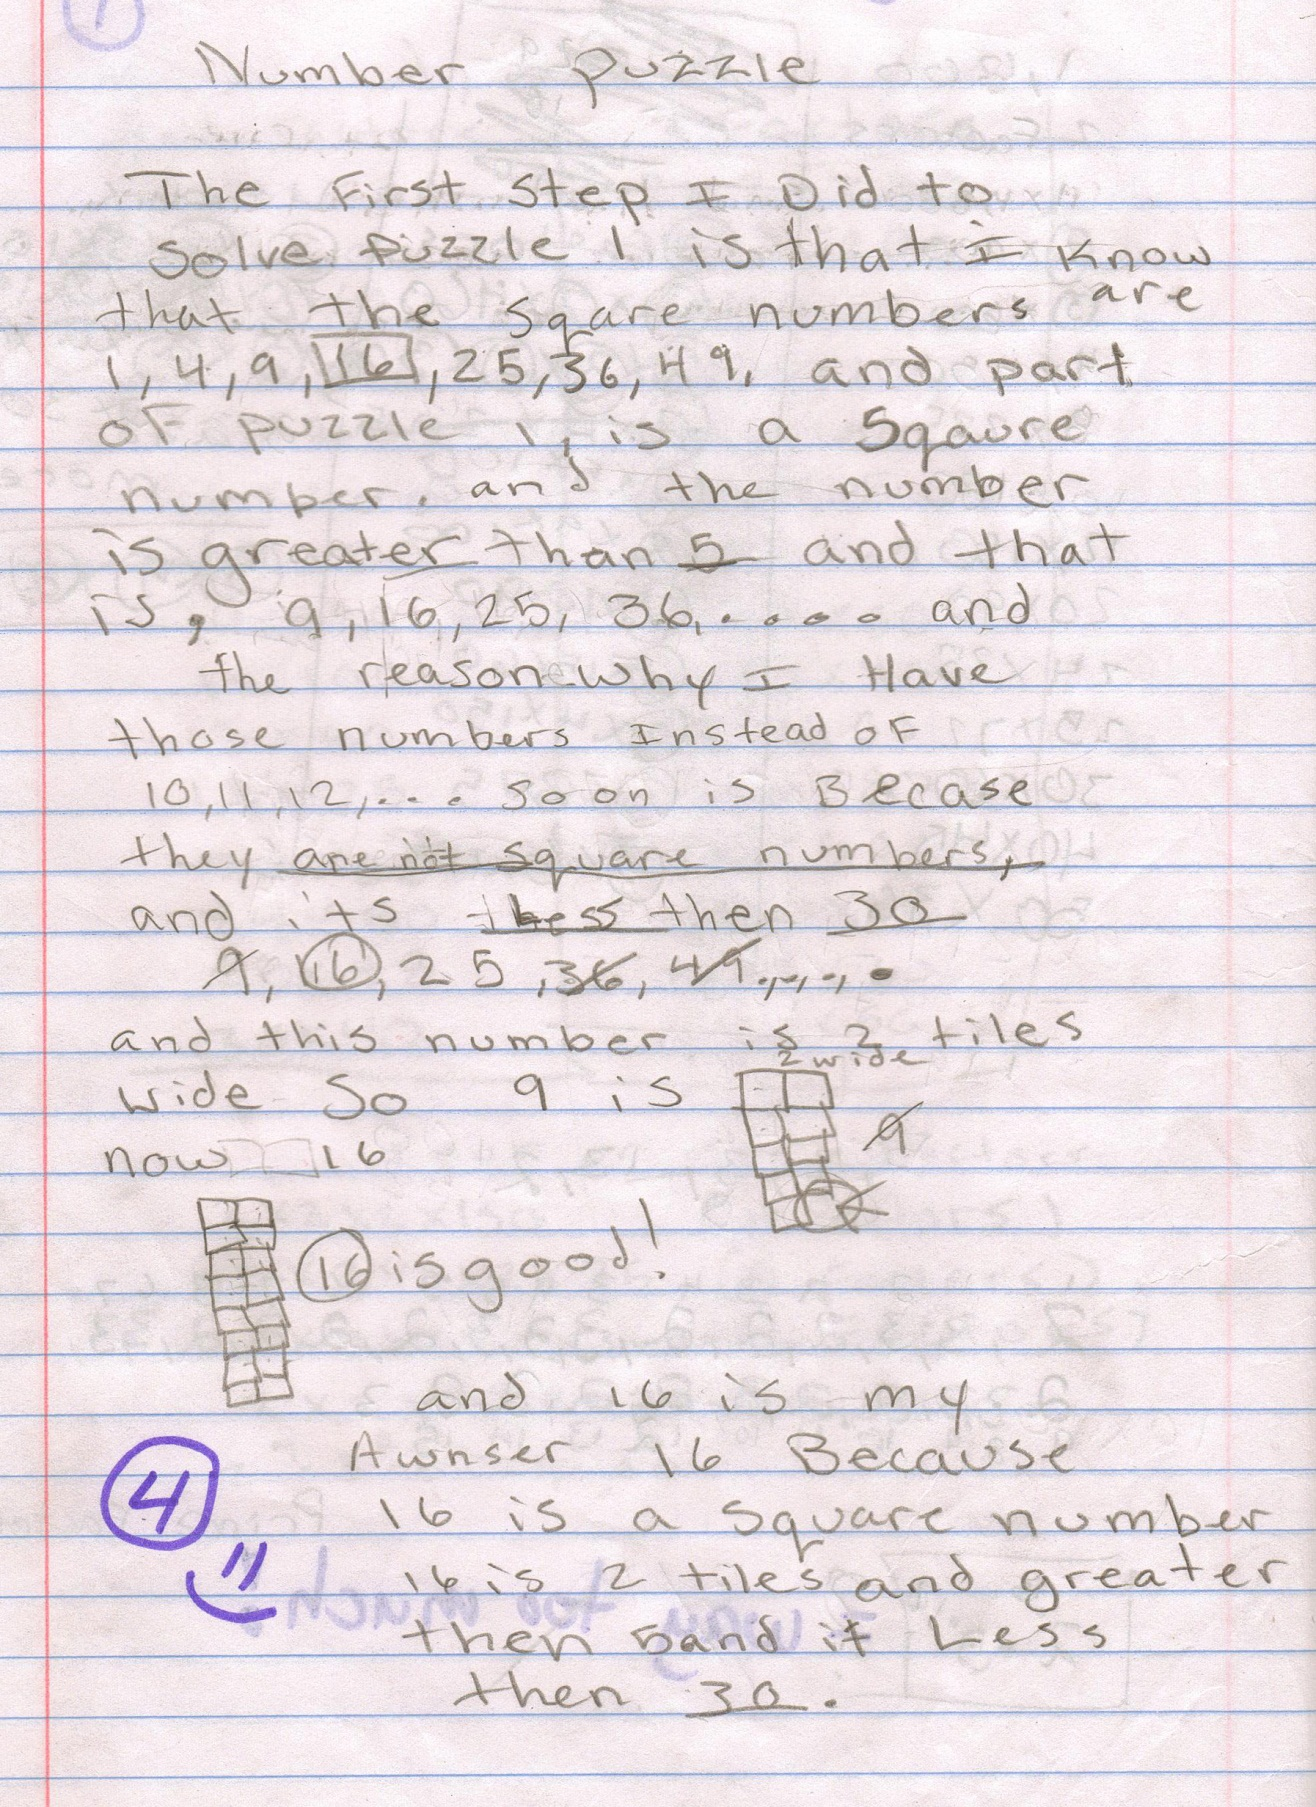 Number puzzle
The First Step I Did to
Solve Puzzle 1 is that I know
that the sqare numbers are
1, 4, 9, 16, 25, 36, 49, and part
of puzzle 1, is a Sqaure
number. and the number
is greater than 5 and that
is, 9, 16, 25, 36, . . . . and
the reason why I Have
those numbers Instead of
10, 11, 12, . . . soon is Becase
they are not square numbers,
and its less then 30
9, 16, 25, 36, 49.,.,.,.
and this number is 2 tiles
2 wide
wide So 9 is
9
now 16
16 is good!
and 16 is my
Awnser 16 Because
4
16 is a square number
16 is 2 tiles and greater
then 5 and it Less
then 30.